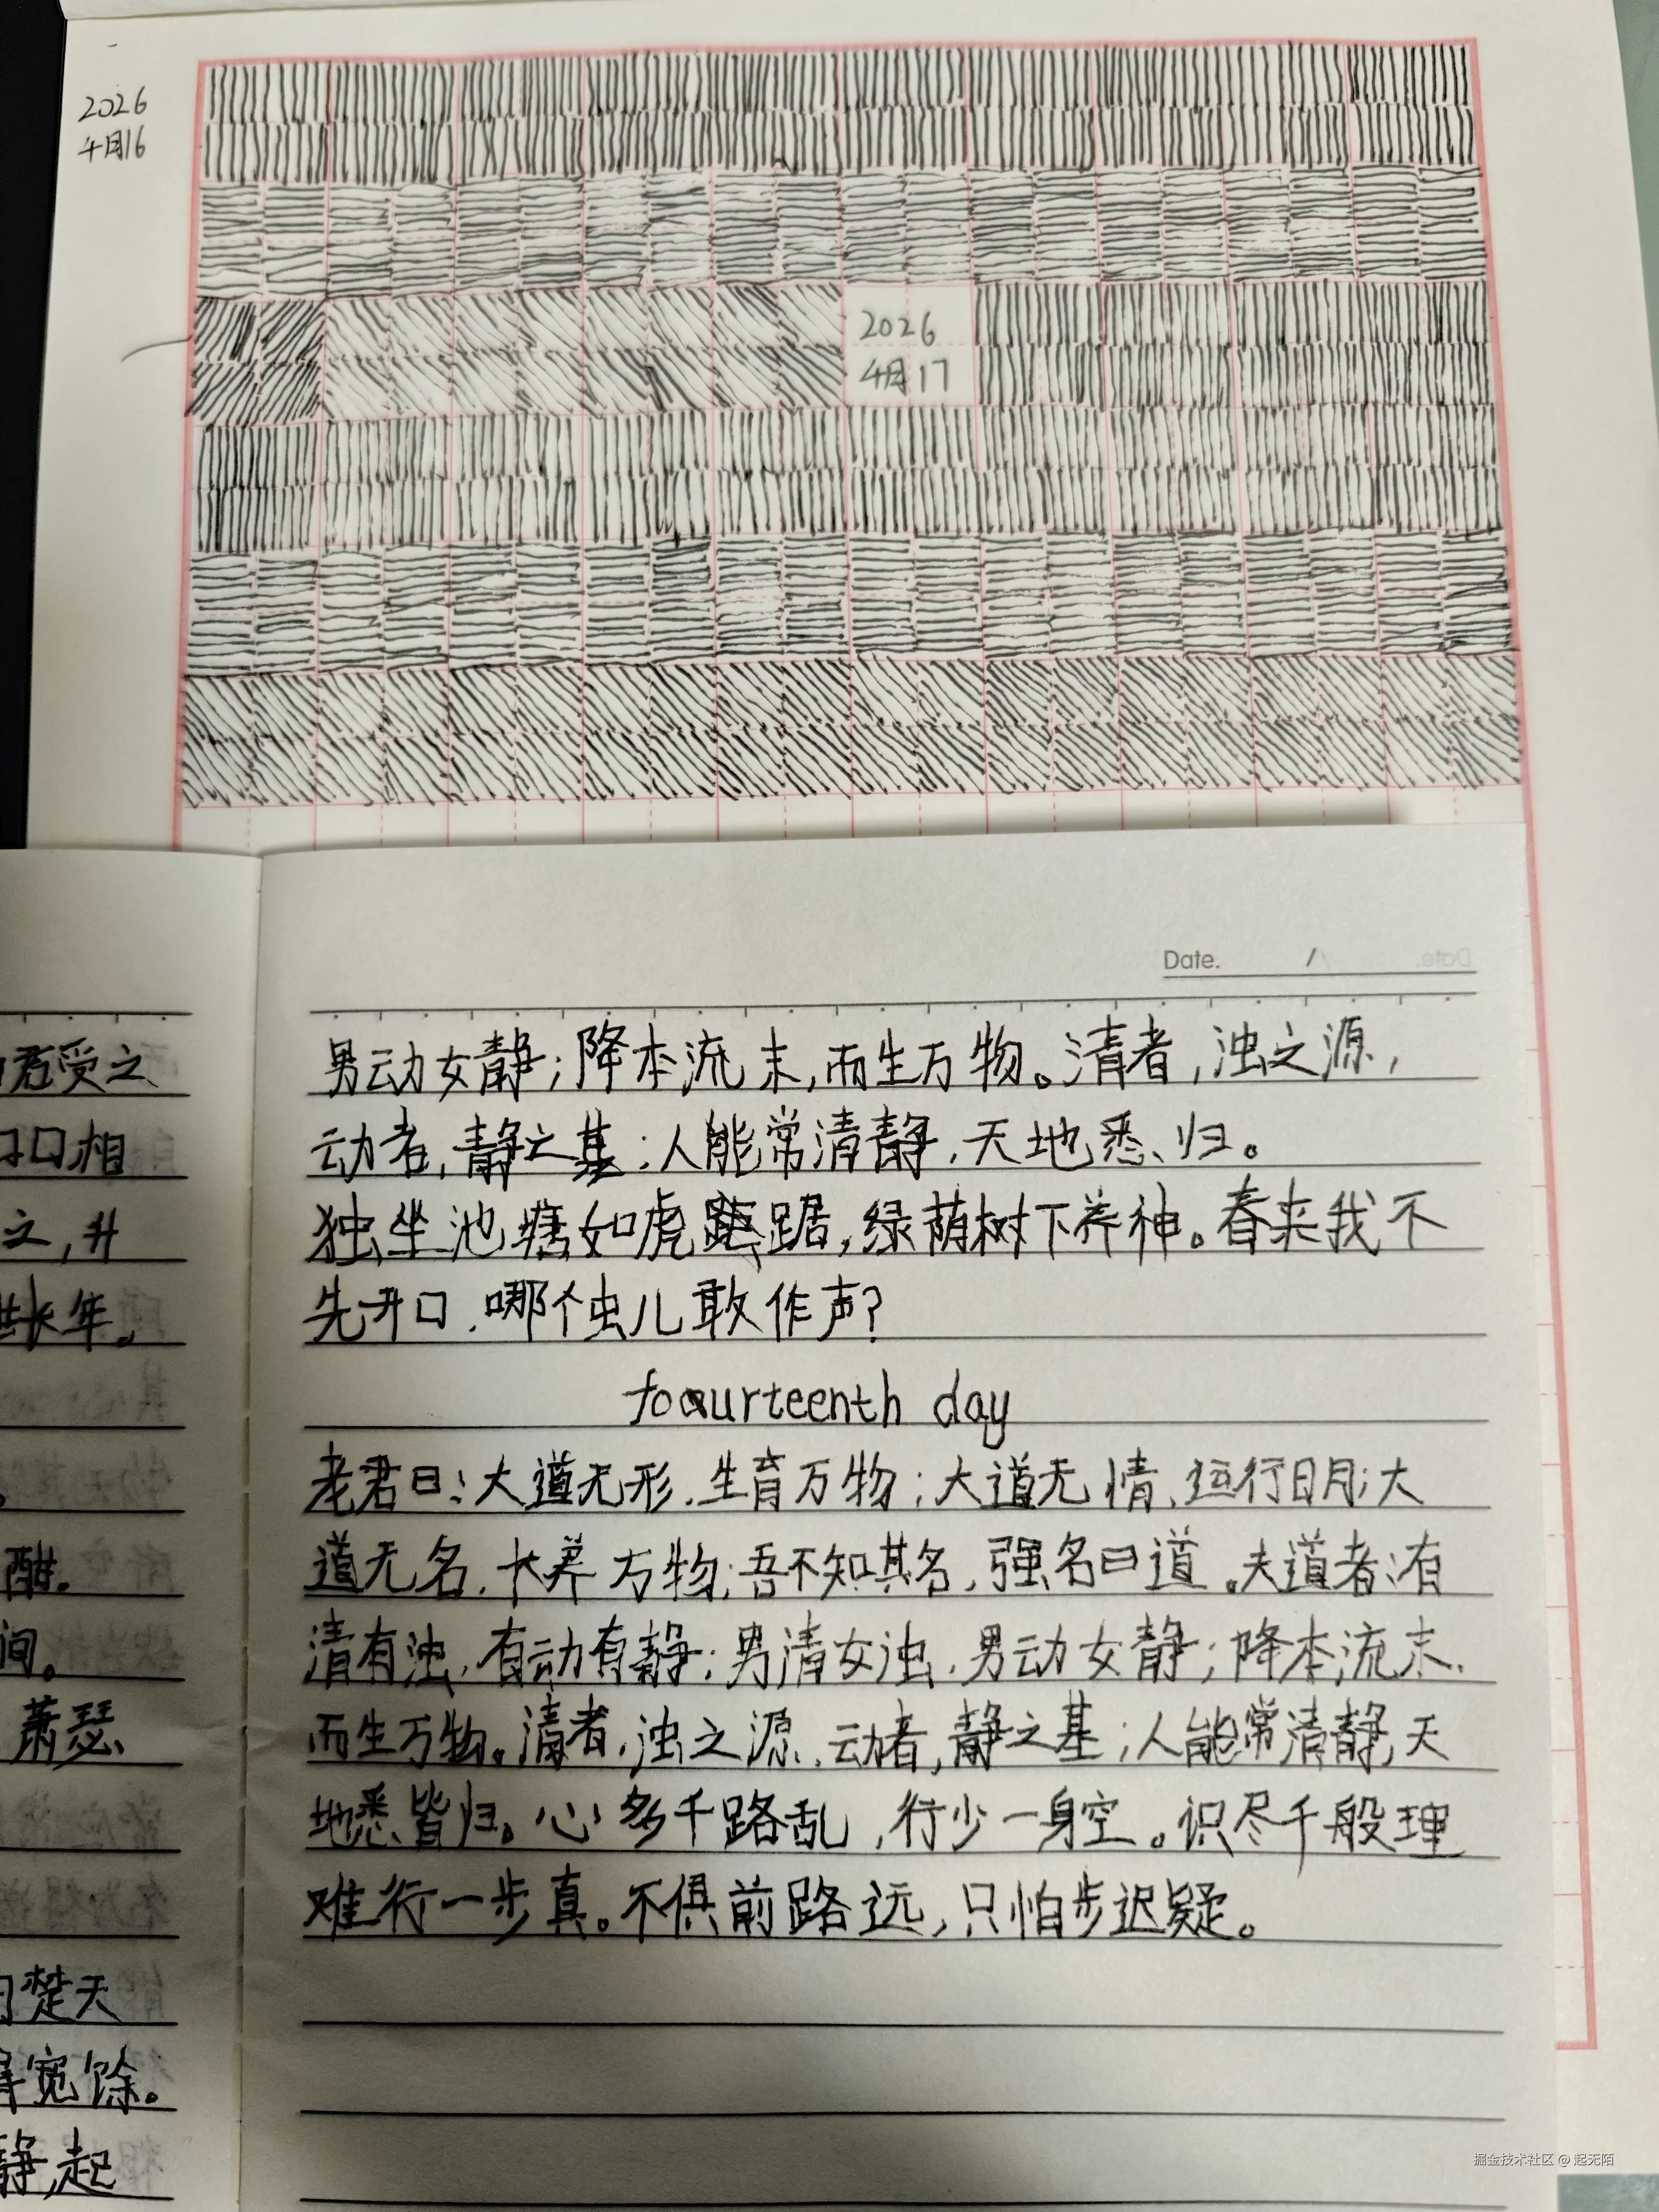 2026
4月16
2026
4月17
Date. /
君受之
口口相
之,升
长年。
酣.
间。
萧瑟、
楚天
宽馀。
静,起
男动女静;降本流末,而生万物。清者,浊之源,
动者,静之基;人能常清静,天地悉、归。
独坐池塘如虎踞,绿荫树下养神。春来我不
先开口,哪个虫儿敢作声?
fourteenth day
老君曰:大道无形,生育万物;大道无情,运行日月;大
道无名,长养万物;吾不知其名,强名曰道。夫道者:有
清有浊,有动有静;男清女浊,男动女静;降本流末,
而生万物。清者,浊之源,动者,静之基;人能常清静,天
地悉皆归。心多千路乱,行少一身空。识尽千般理
难行一步真。不俱前路远,只怕步迟疑。
掘金技术社区 @ 起无陌